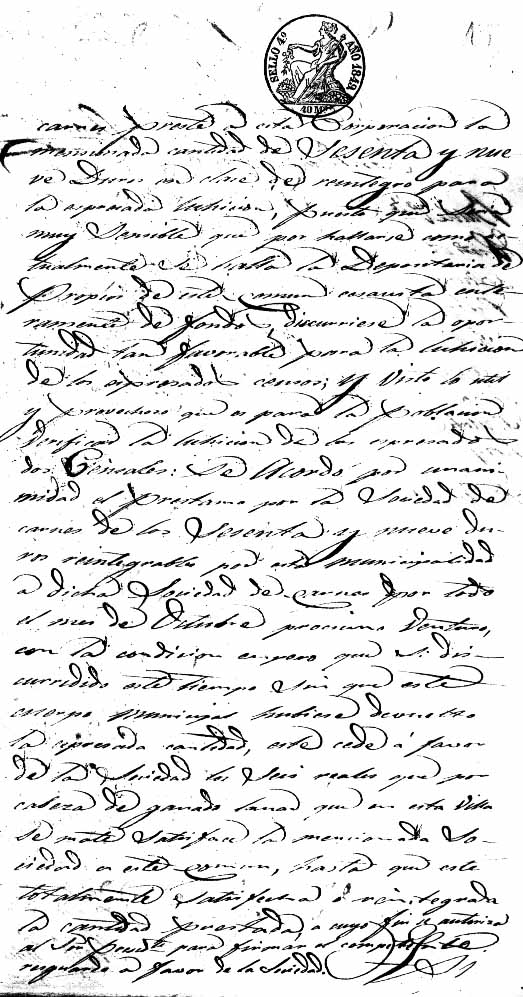 SELLO 4º AÑO 1848
40 MRS
carnes preste a esta Corporacion la
mencionada cantidad de Sesenta y nue
ve Duros en clase de reintegro para
la espresada luhicion, puesto que
muy sensible que por hallarse
tualmente se halla la Depositaria de
Propios de este comun ecsausta ente
ramente de fondos, discurriese la opor
tunidad tan favorable para la luhicion
de los espresados censos; y Visto lo util
y provechoso que es para la Poblacion
verificar la luhicion de los espresados
dos Censales: Se Acordó por unani
midad el prestamo por la Sociedad de
carnes de los Sesenta y nueve du
ros reintegrables por esta Municipalidad
a dicha Sociedad de carnes por todo
el mes de Octubre procsimo Venturo,
con la condicion empero que si dis
curridido este tiempo sin que este
cuerpo Municipal hubiese devuelto
la espresada cantidad, este cede á favor
de la Sociedad los Seis reales que por
cabeza de ganado lanar que en esta Villa
se mate satisface la mencionada So
ciedad a este comun, hasta que esté
totalmente satisfecha ó reintegrada
la cantidad prestada, a cuyo fin se autoriza
al Sor Presdte para firmar el competente
resguardo a favor de la Sociedad.